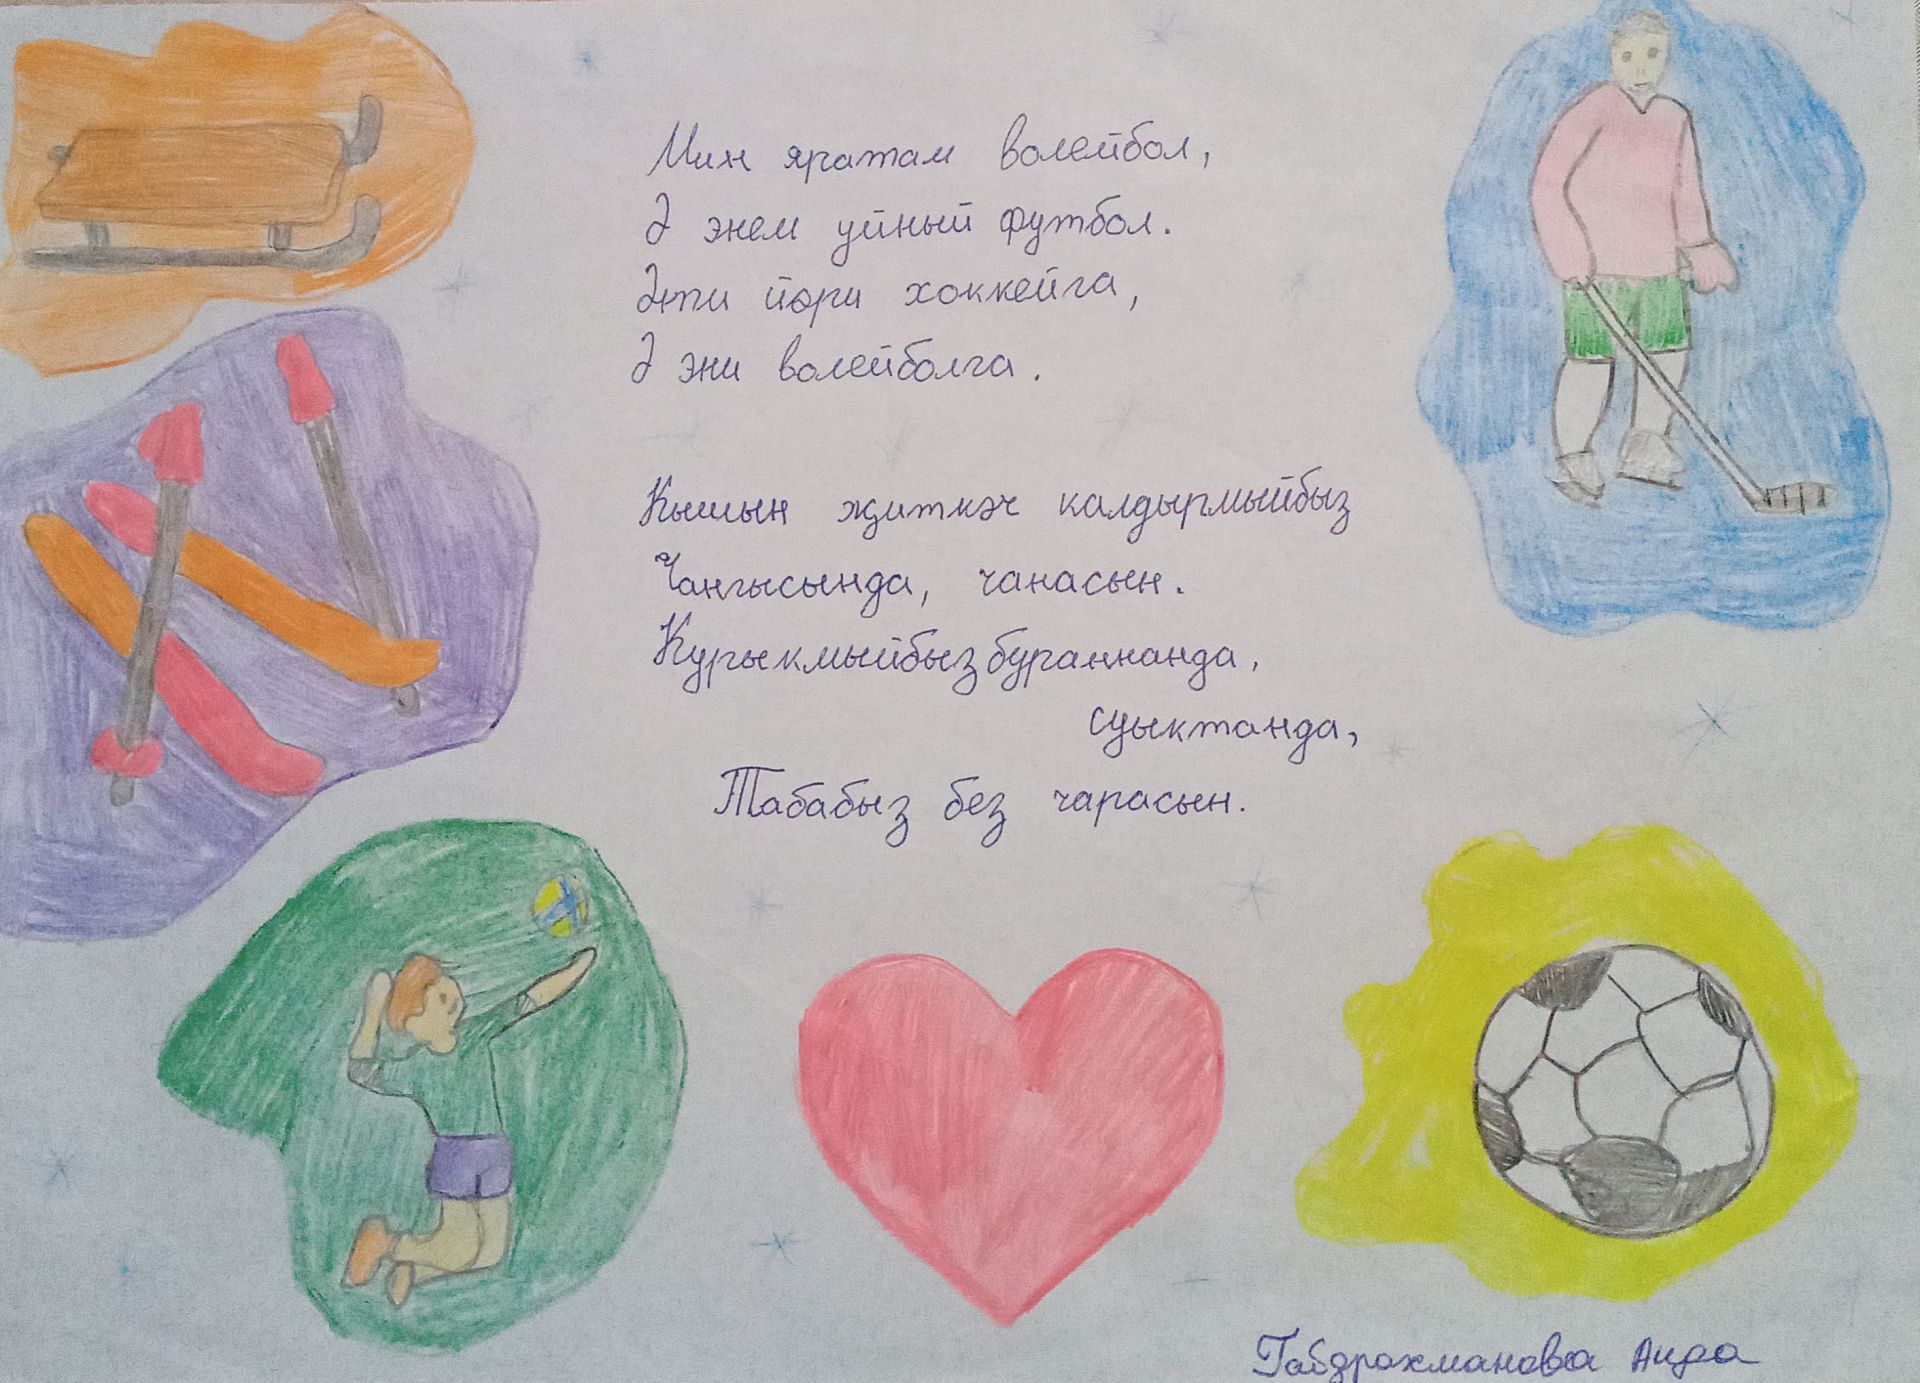 Мин яратам волейбол,
Ә энем уйный футбол.
Әти йөри хоккейга,
Ә әни волейболга.
Кышын җиткәч калдырмыйбыз
Чаңгысында, чанасын.
Курыкмыйбыз бураннанда,
суыктанда,
Табабыз без чарасын.
Габдрахманова Аида